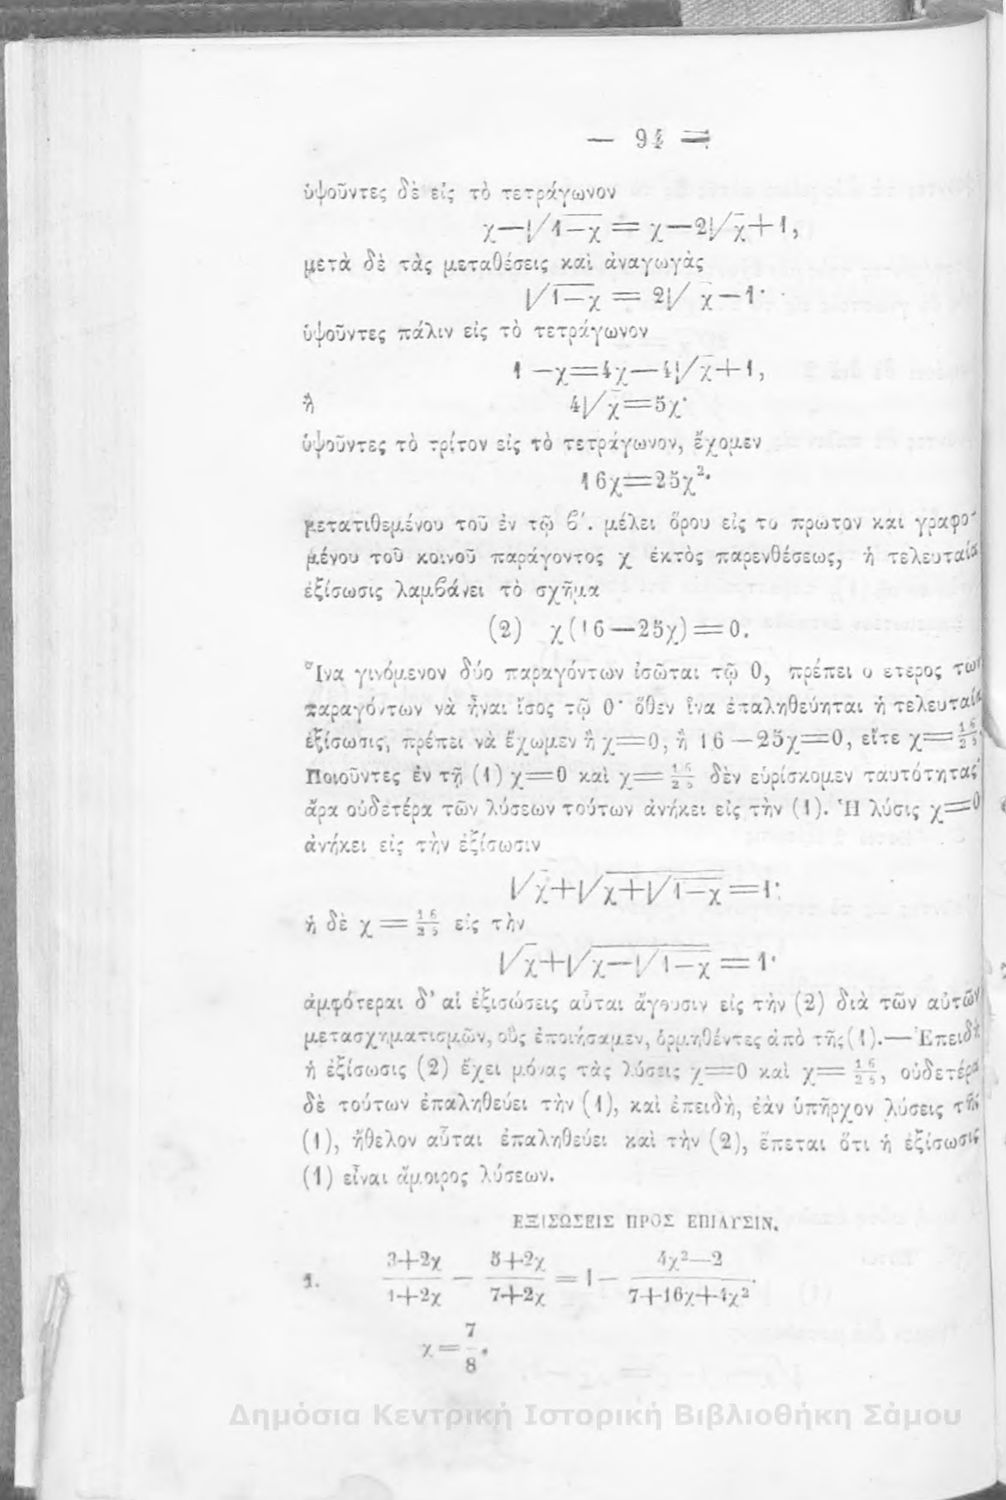 — 94 —
ὑψοῦντες δὲ εἰς τὸ τετράγωνον
χ—√1—χ = χ—2√χ+1,
μετὰ δὲ τὰς μεταθέσεις καὶ ἀναγωγὰς
√1—χ = 2√χ—1·
ὑψοῦντες πάλιν εἰς τὸ τετράγωνον
1—χ=4χ—4√χ+1,
ἢ 4√χ=5χ·
ὑψοῦντες τὸ τρίτον εἰς τὸ τετράγωνον, ἔχομεν
16χ=25χ²·
μετατιθεμένου τοῦ ἐν τῷ ϐ'. μέλει ὅρου εἰς τὸ πρῶτον καὶ γραφο-
μένου τοῦ κοινοῦ παράγοντος χ ἐκτὸς παρενθέσεως, ἡ τελευταία
ἐξίσωσις λαμϐάνει τὸ σχῆμα
(2) χ(16—25χ)=0.
Ἵνα γινόμενον δύο παραγόντων ἰσῶται τῷ 0, πρέπει ὁ ἕτερος τῶν
παραγόντων νὰ ἦναι ἴσος τῷ 0· ὅθεν ἵνα ἐπαληθεύηται ἡ τελευταία
ἐξίσωσις, πρέπει νὰ ἔχωμεν ἢ χ=0, ἢ 16—25χ=0, εἴτε χ=16/25·
Ποιοῦντες ἐν τῇ (1) χ=0 καὶ χ=16/25 δὲν εὑρίσκομεν ταυτότητας·
ἄρα οὐδετέρα τῶν λύσεων τούτων ἀνήκει εἰς τὴν (1). Ἡ λύσις χ=0
ἀνήκει εἰς τὴν ἐξίσωσιν
√χ+√χ+√1—χ=1·
ἡ δὲ χ=16/25 εἰς τὴν
√χ+√χ—√1—χ=1·
ἀμφότεραι δ' αἱ ἐξισώσεις αὗται ἄγουσιν εἰς τὴν (2) διὰ τῶν αὐτῶν
μετασχηματισμῶν, οὓς ἐποιήσαμεν, ὁρμηθέντες ἀπὸ τῆς (1).— Ἐπειδὴ
ἡ ἐξίσωσις (2) ἔχει μόνας τὰς λύσεις χ=0 καὶ χ=16/25, οὐδετέρα
δὲ τούτων ἐπαληθεύει τὴν (1), καὶ ἐπειδὴ, ἐὰν ὑπῆρχον λύσεις τῆς
(1), ἤθελον αὗται ἐπαληθεύει καὶ τὴν (2), ἕπεται ὅτι ἡ ἐξίσωσις
(1) εἶναι ἄμοιρος λύσεων.
ΕΞΙΣΩΣΕΙΣ ΠΡΟΣ ΕΠΙΛΥΣΙΝ.
1. (3+2χ)/(1+2χ) — (5+2χ)/(7+2χ) = 1— (4χ²—2)/(7+16χ+4χ²)·
χ=7/8.
Δημόσια Κεντρική Ιστορική Βιβλιοθήκη Σάμου